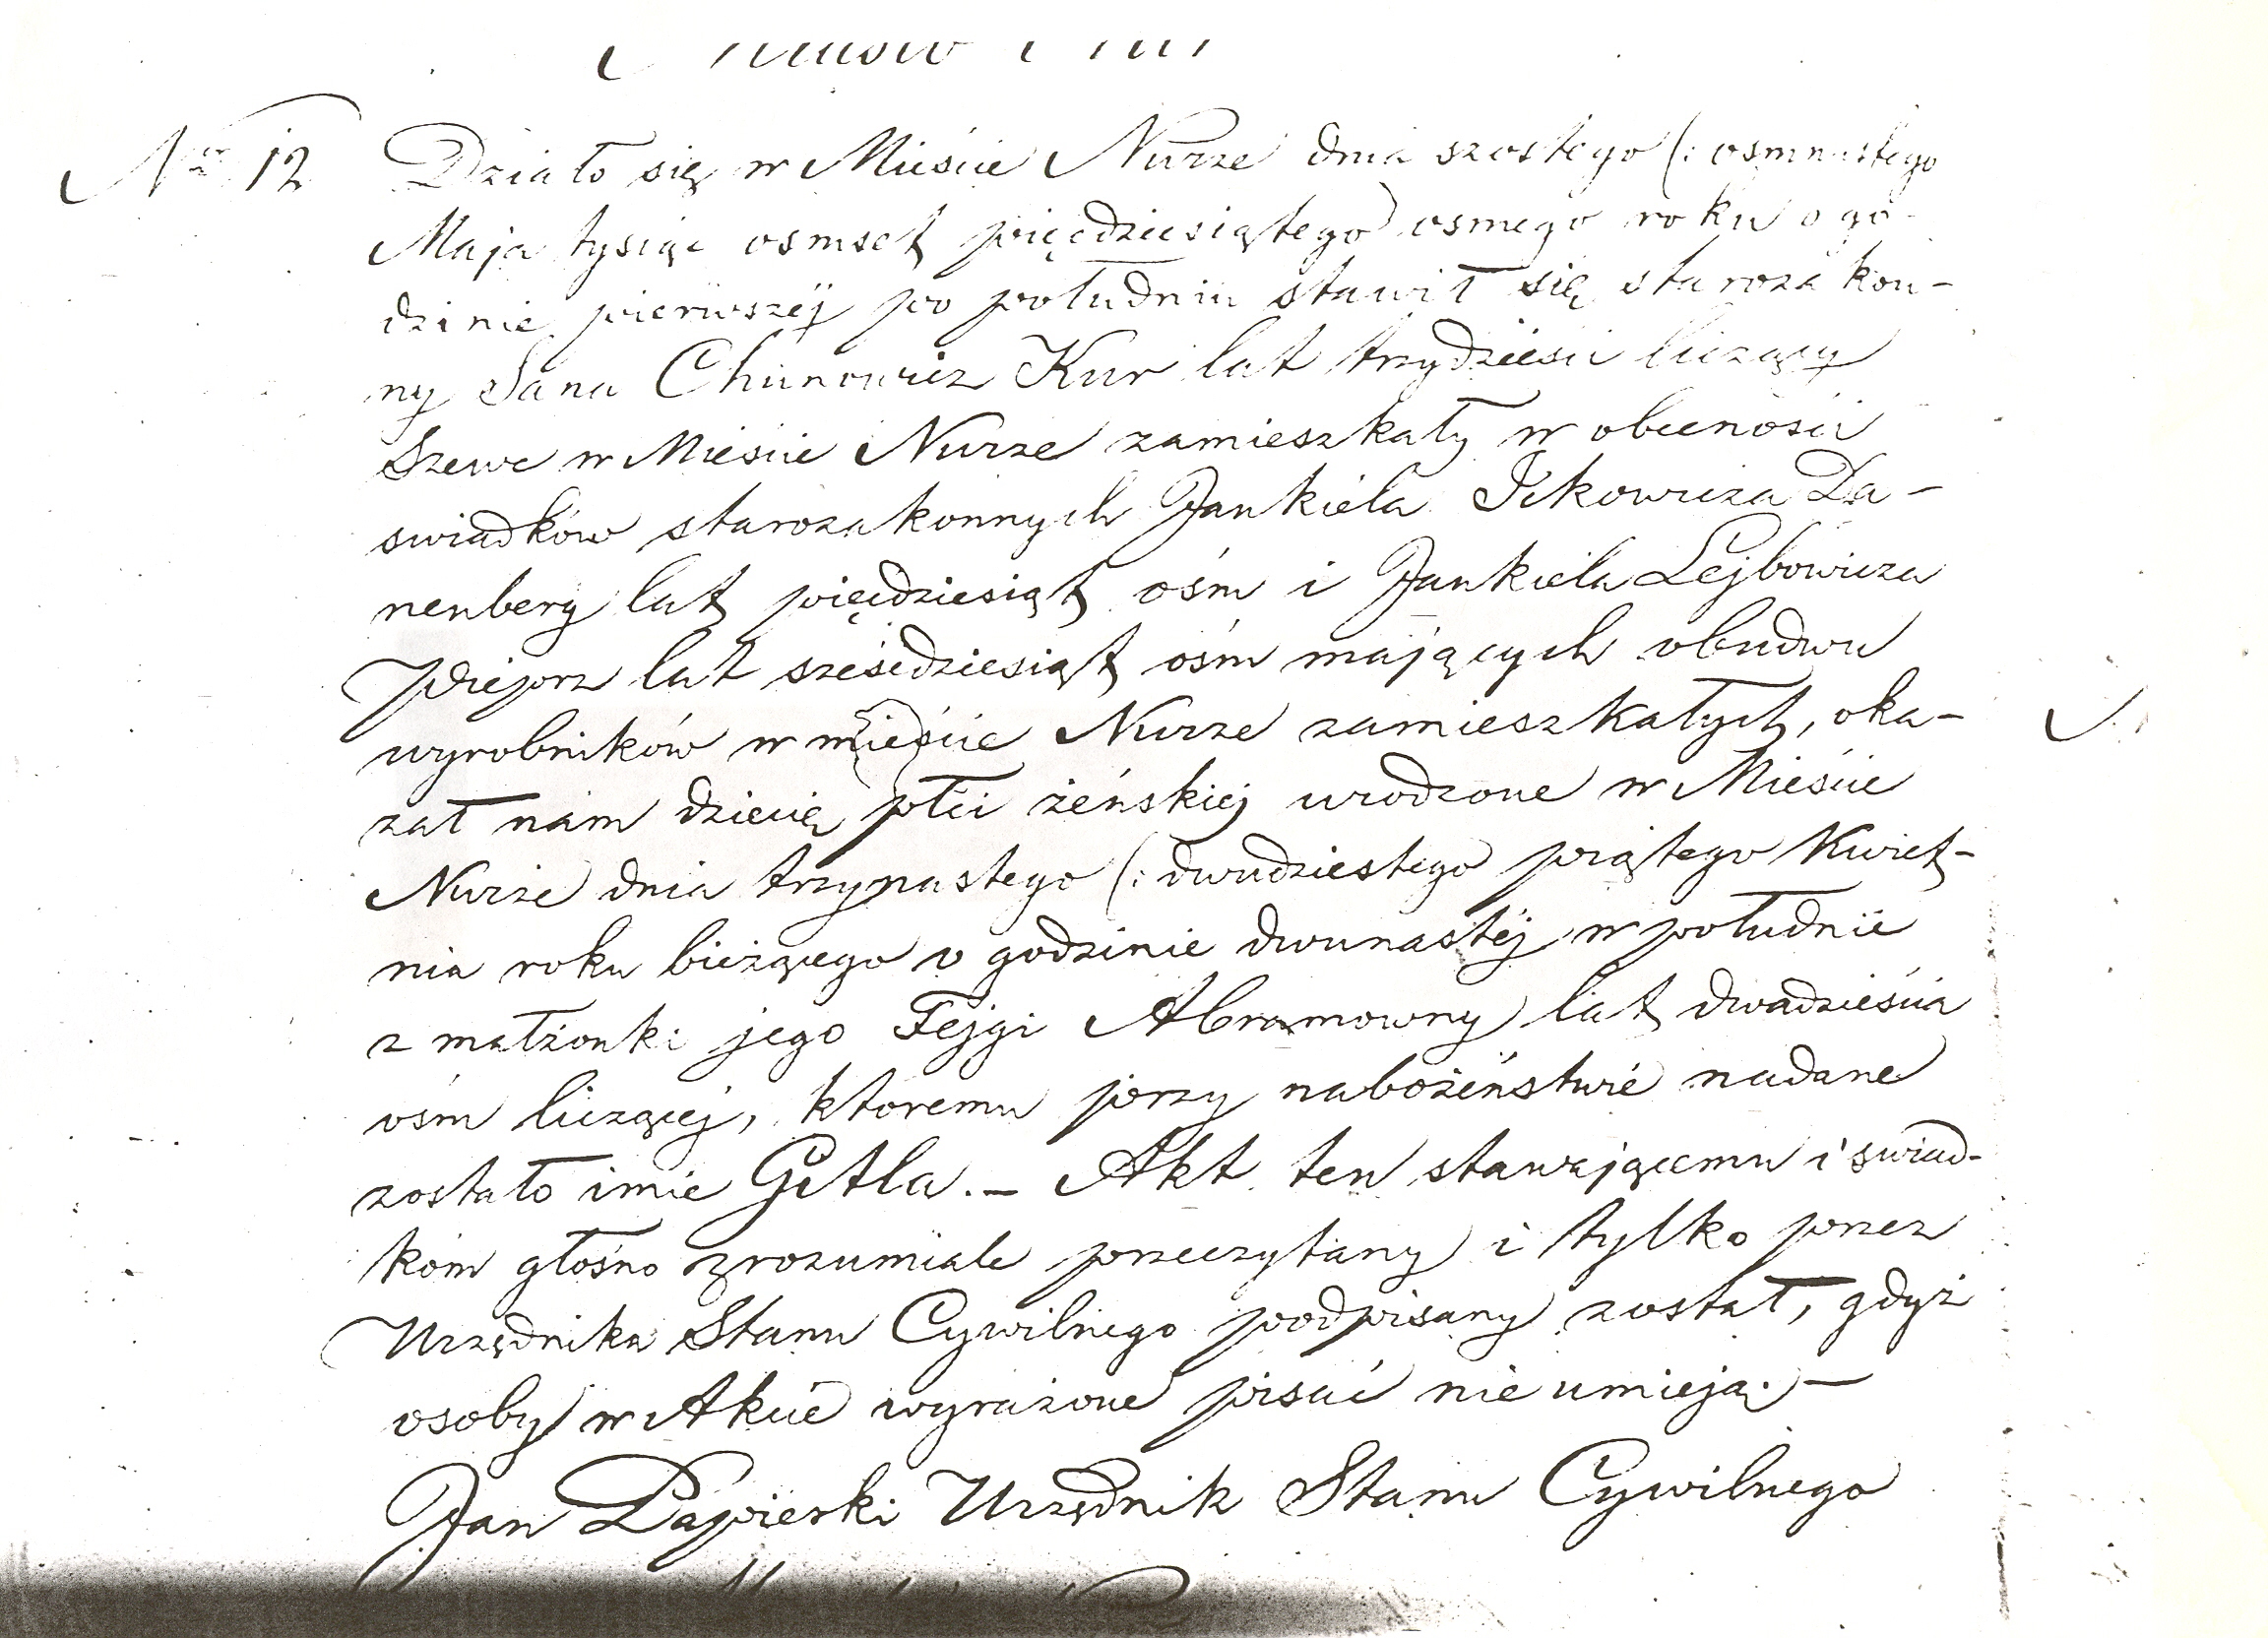 Nr 12 Działo się w Mieście Nurze dnia szostego (: osmnastego
Maja tysiąc osmset pięćdziesiątego osmego roku o go-
dzinie pierwszéj po południu stawił się starozakon-
ny Sana Chunowicz Kur lat trzydzieści liczący
Szewc w Mieście Nurze zamieszkały w obecności
swiadków starozakonnych Jankiela Ickowicza Da-
nenberg lat pięćdziesiąt ośm i Jankiela Lejbowicza
lat sześćdziesiąt ośm mających obudwu
wyrobników w mieście Nurze zamieszkałych, oka-
zał nam dziecię płci żeńskiej urodzone w Mieście
Nurze dnia trzynastego (: dwudziestego piątego Kwiet-
nia roku bieżącego o godzinie dwunastéj w południe
z małżonki jego Fejgi Abramowny lat dwadzieścia
ośm liczącej, ktoremu przy nabożeństwie nadane
zostało imie Gitla. – Akt ten stawającemu i swiad-
kom głośno zrozumiale przeczytany i tylko przez
Urzędnika Stanu Cywilnego podpisany został, gdyż
osoby w Akcie wyrażone pisać nie umieją. –
Jan Papierski Urzędnik Stanu Cywilnego